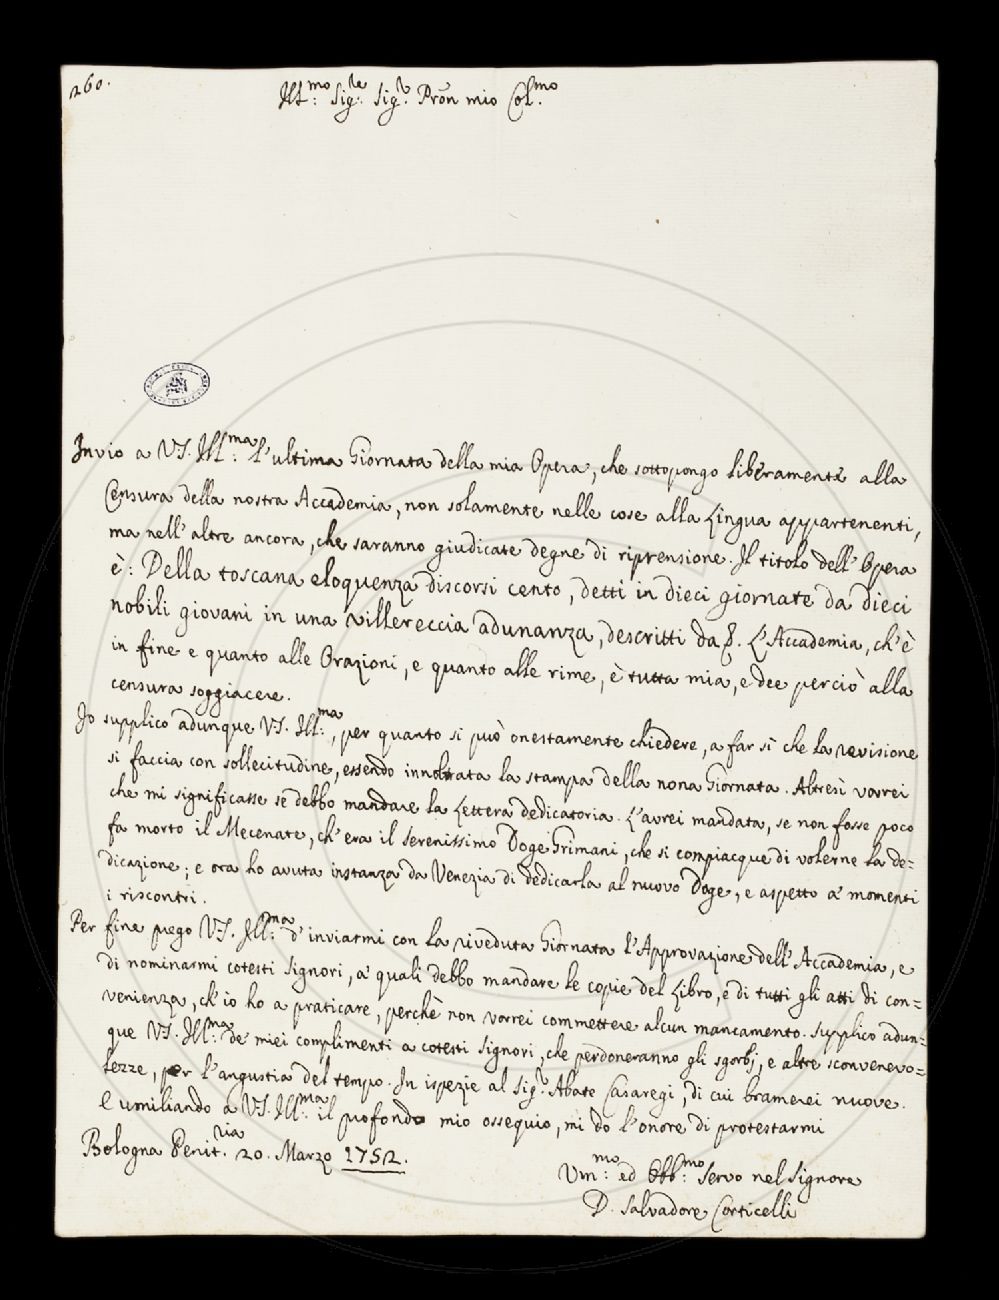 260.
Ill:mo Sig:re Sig:r Pron mio Col:mo
Invio a VS. Ill:ma l'ultima Giornata della mia Opera, che sottopongo liberamente alla
Censura della nostra Accademia, non solamente nelle cose alla Lingua appartenenti,
ma nell'altre ancora, che saranno giudicate degne di riprensione. Il titolo dell'Opera
è: Della toscana eloquenza discorsi cento, detti in dieci giornate da dieci
nobili giovani in una villereccia adunanza, descritti da &. L'Accademia, ch'è
in fine e quanto alle Orazioni, e quanto alle rime, è tutta mia, e dee perciò alla
censura soggiacere.
Io supplico adunque VS. Ill:ma, per quanto si può onestamente chiedere, a far sì che la revisione
si faccia con sollecitudine, essendo innoltrata la stampa della nona Giornata. Altresì vorrei
che mi significasse se debbo mandare la Lettera dedicatoria. L'avrei mandata, se non fosse poco
fa morto il Mecenate, ch'era il Serenissimo Doge Grimani, che si compiacque di volerne la de=
dicazione; e ora ho avuta instanza da Venezia di dedicarla al nuovo Doge, e aspetto a' momenti
i riscontri.
Per fine prego VS. Ill:ma d'inviarmi con la riveduta Giornata l'Approvazione dell'Accademia, e
di nominarmi cotesti Signori, a' quali debbo mandare le copie del Libro, e di tutti gli atti di con=
venienza, ch'io ho a praticare, perchè non vorrei commettere alcun mancamento. Supplico adun=
que VS. Ill:ma de' miei complimenti a cotesti Signori, che perdoneranno gli sgorbj, e altre sconvenevo=
lezze, per l'angustia del tempo. In ispezie al Sig:r Abate Casaregi, di cui bramerei nuove.
E umiliando a VS. Ill:ma il profondo mio ossequio, mi do l'onore di protestarmi
Bologna Penit.ria 20. Marzo 1752.
Um:mo ed Obb:mo Servo nel Signore
D. Salvadore Corticelli